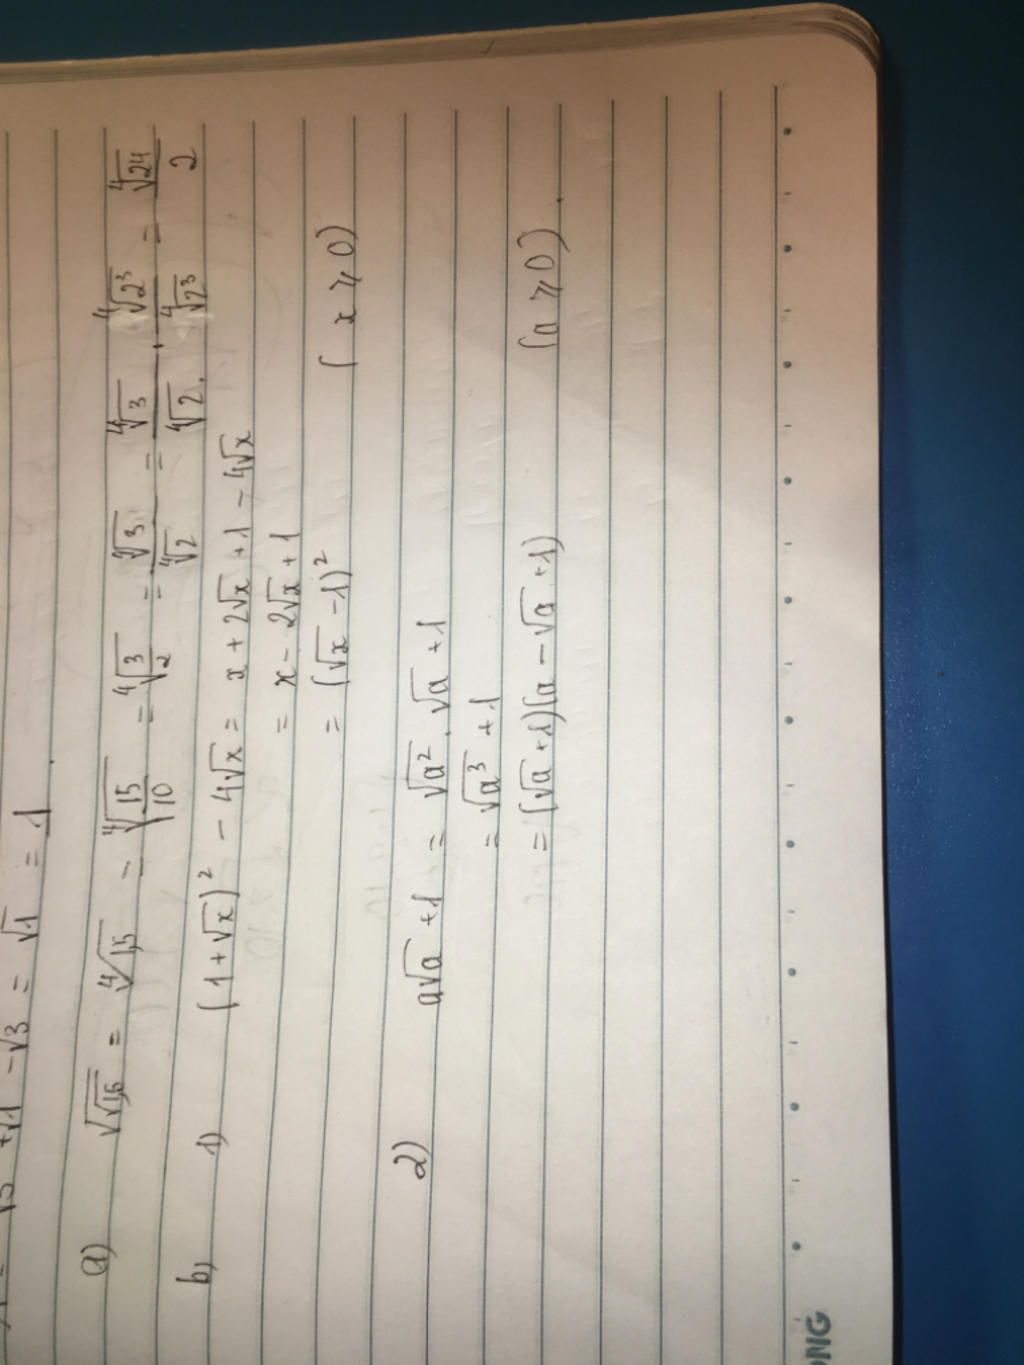 √3 + √1 - √3 = √1 = 1
a) √√1,5 = ⁴√1,5 = ⁴√(15/10) = ⁴√(3/2) = ⁴√3/⁴√2 = (⁴√3 . ⁴√2³)/(⁴√2 . ⁴√2³) = ⁴√24/2
b) 1) (1+√x)² - 4√x = x + 2√x + 1 - 4√x
= x - 2√x + 1
= (√x - 1)² ( x ⩾ 0)
2) a√a + 1 = √a² . √a + 1
= √a³ + 1
= (√a + 1)(a - √a + 1) (a ⩾ 0).
ONG